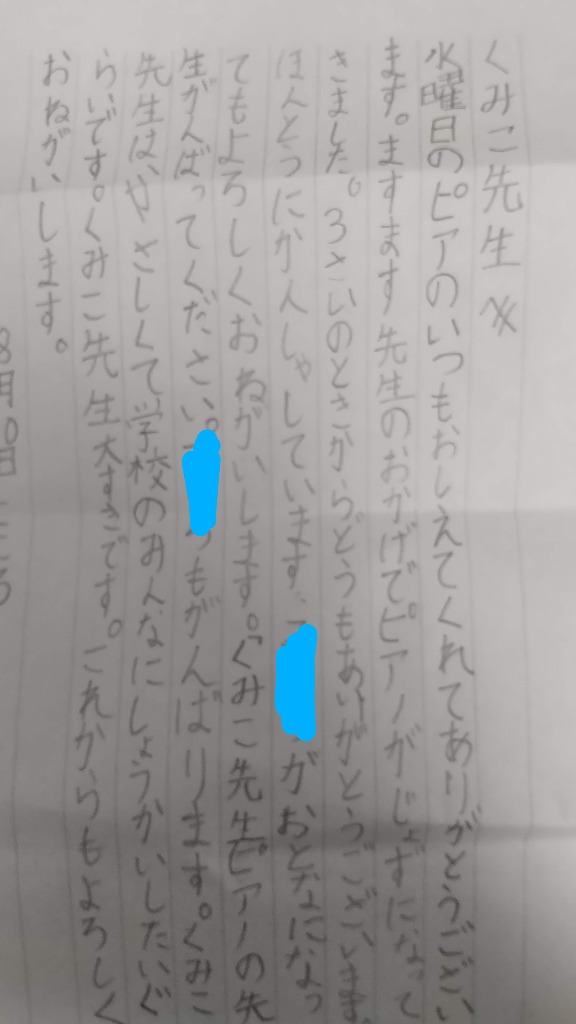 くみこ先生へ
水曜日のピアのいつもおしえてくれてありがとうござい
ます。ますます先生のおかげでピアノがじょずになって
きました。3さいのときからどうもありがとうございます。
ほんとうにかんしゃしています。がおとなになっ
てもよろしくおねがいします。くみこ先生ピアノの先
生がんばってください。もがんばります。くみこ
先生は、やさしくて学校のみんなにしょうかいしたいぐ
らいです。くみこ先生大すきです。これからもよろしく
おねがいします。
8月10日